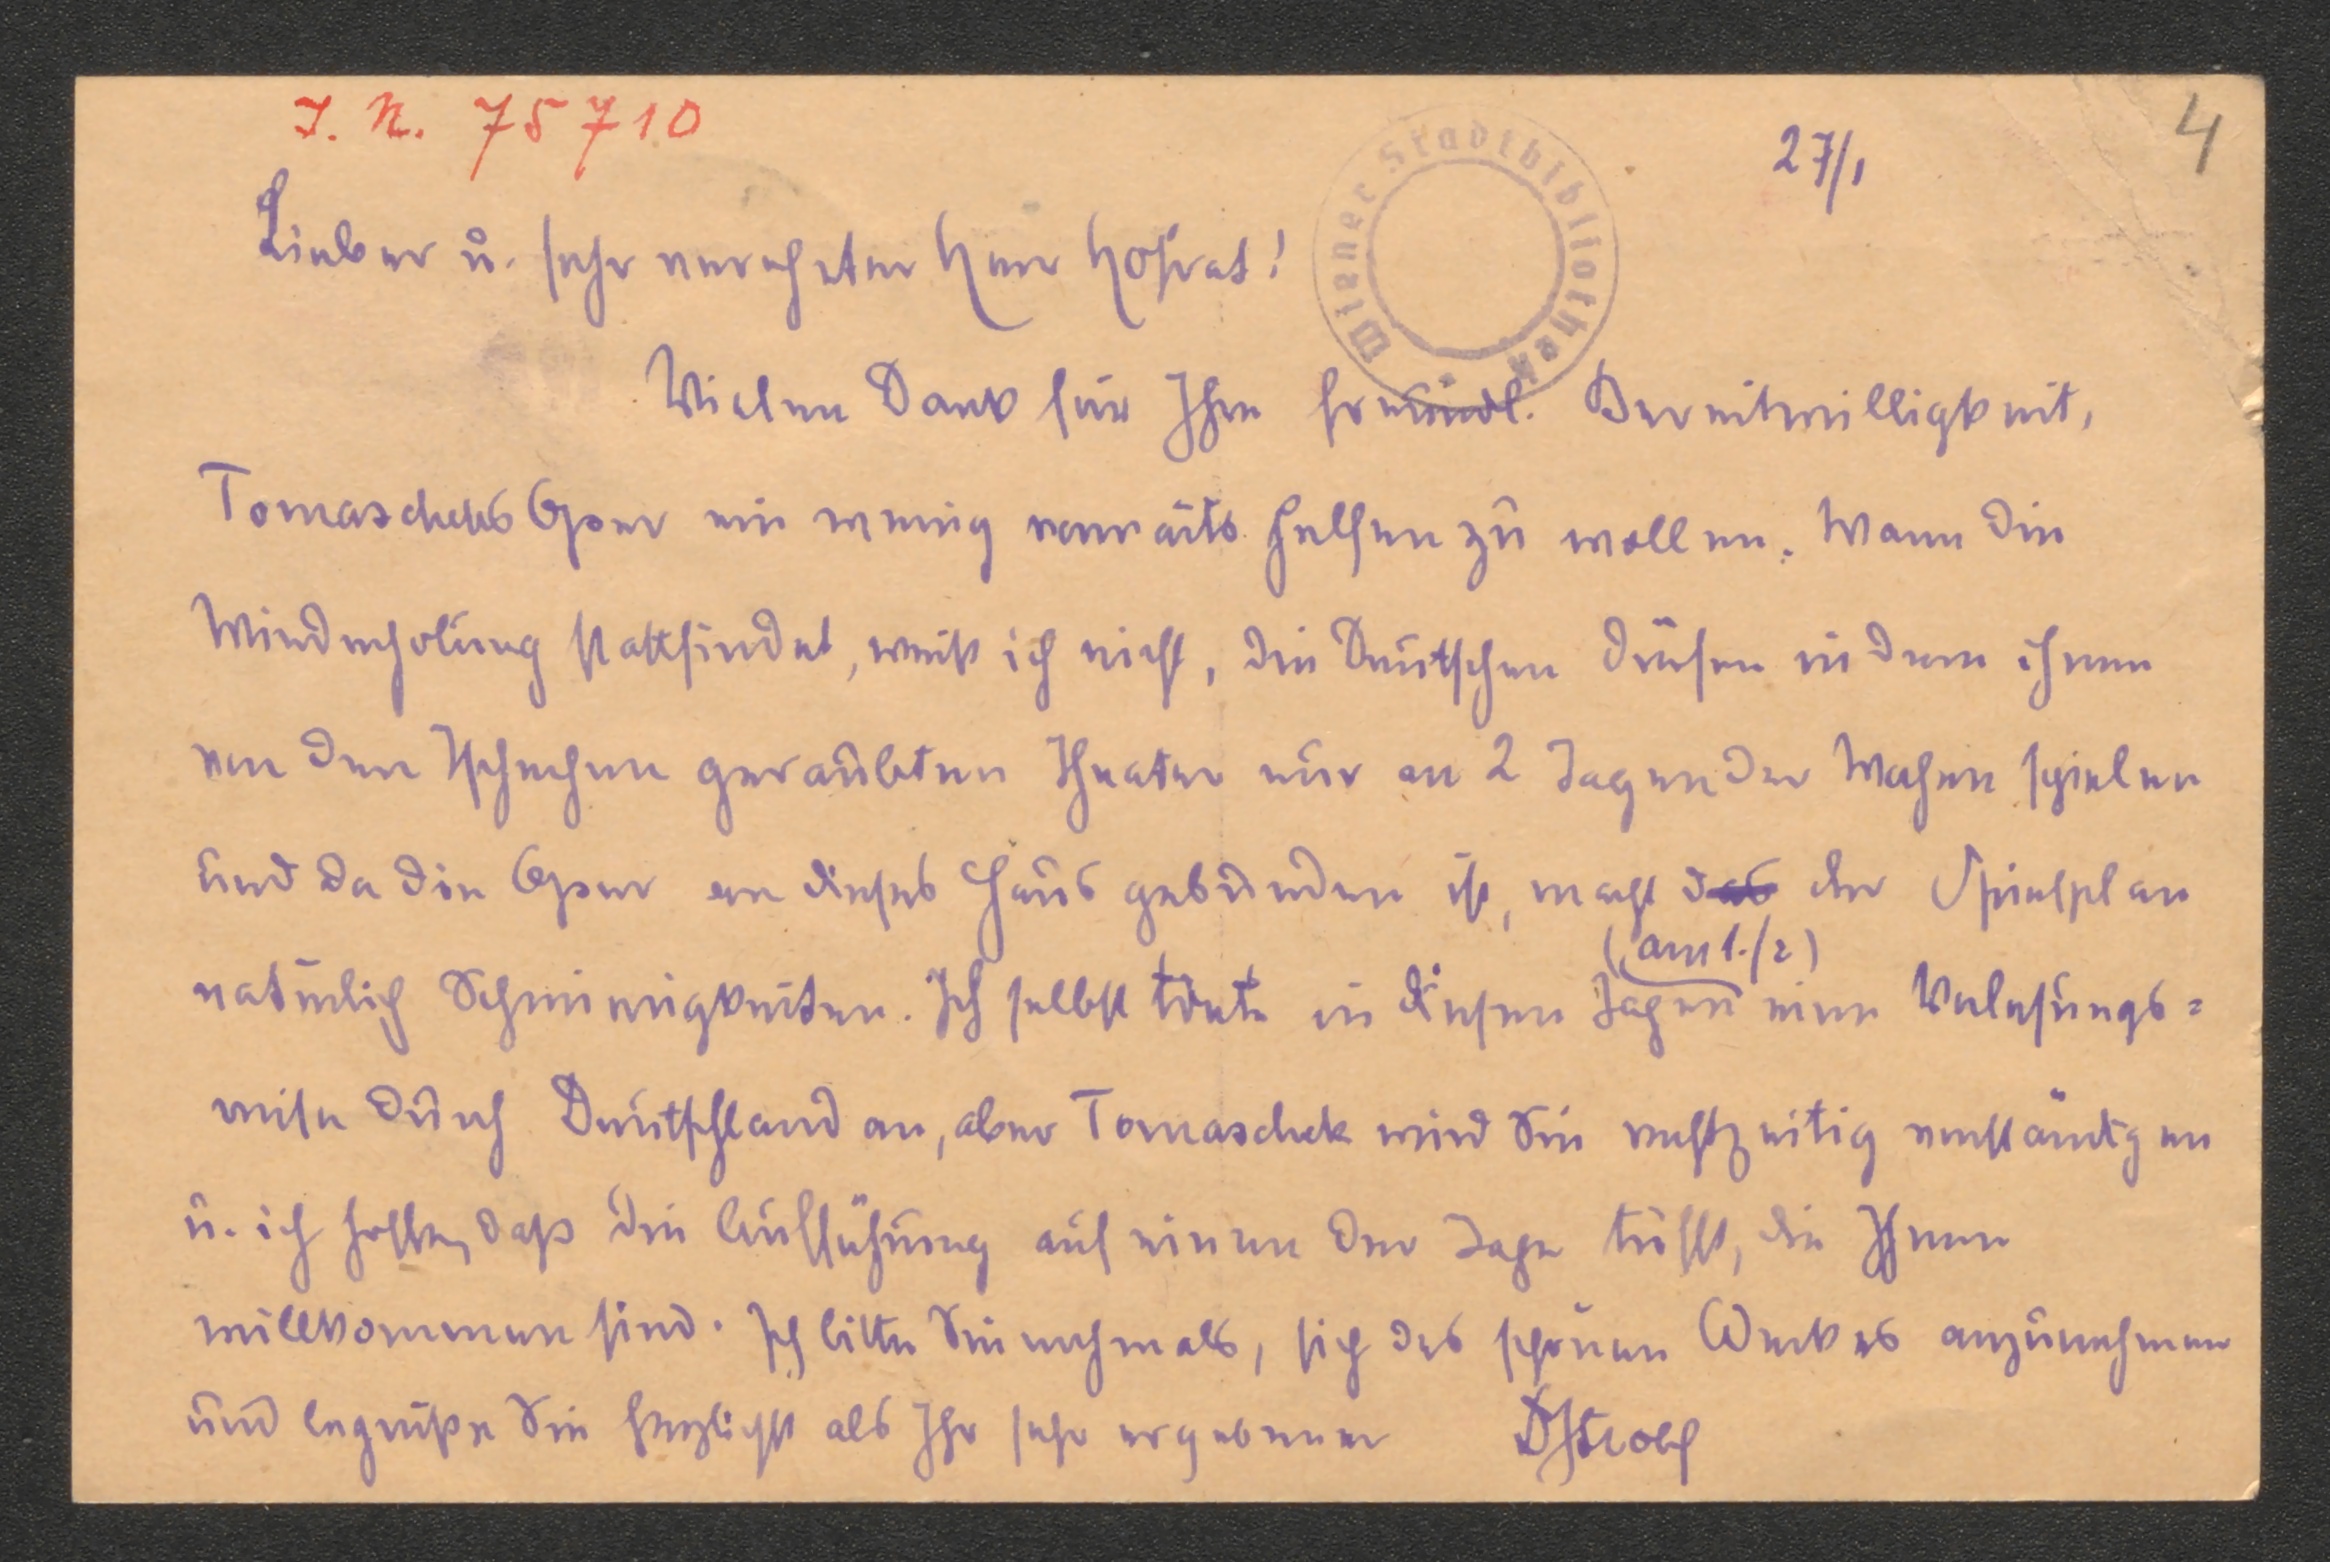 J. N. 75710
4
27/1
Wiener Stadtbibliothek
Lieber u. sehr verehrter Herr Hofrat!
Vielen Dank für Ihre freundl. Bereitwilligkeit,
Tomascheks Oper ein wenig vorwärts helfen zu wollen. Wann die
Wiederholung stattfindet, weiß ich nicht, die Deutschen dürfen in dem ihnen
von den Tschechen geraubten Theater nur an 2 Tagen der Woche spielen
und da die Oper an dieses Haus gebunden ist, macht das der Spielplan
(am 1./2)
natürlich Schwierigkeiten. Ich selbst trete in diesen Tagen eine Vorlesungs=
reise durch Deutschland an, aber Tomaschek wird Sie rechtzeitig verständigen
u. ich hoffe, daß die Aufführung auf einen der Tage trifft, die Ihnen
willkommen sind. Ich bitte Sie nochmals, sich des schönen Werkes anzunehmen
und begrüße Sie herzlichst als Ihr sehr ergebener